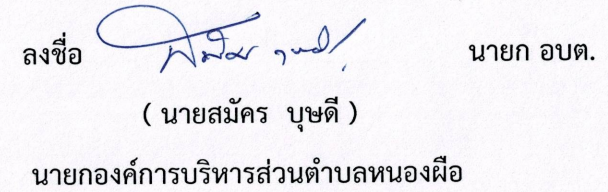 ลงชื่อ นายก อบต.
( นายสมัคร บุษดี )
นายกองค์การบริหารส่วนตำบลหนองผือ